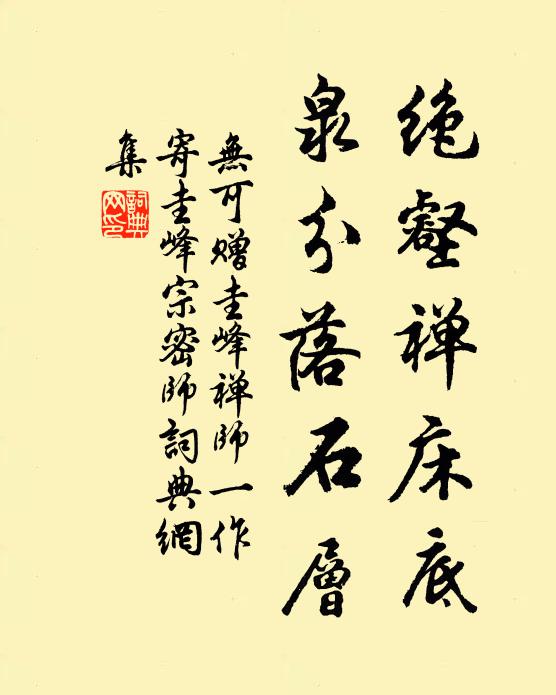 绝壑禅床底
泉分落石层
無可赠圭峰禅师一作
寄圭峰宗密师詞典網
集
詞典
网印